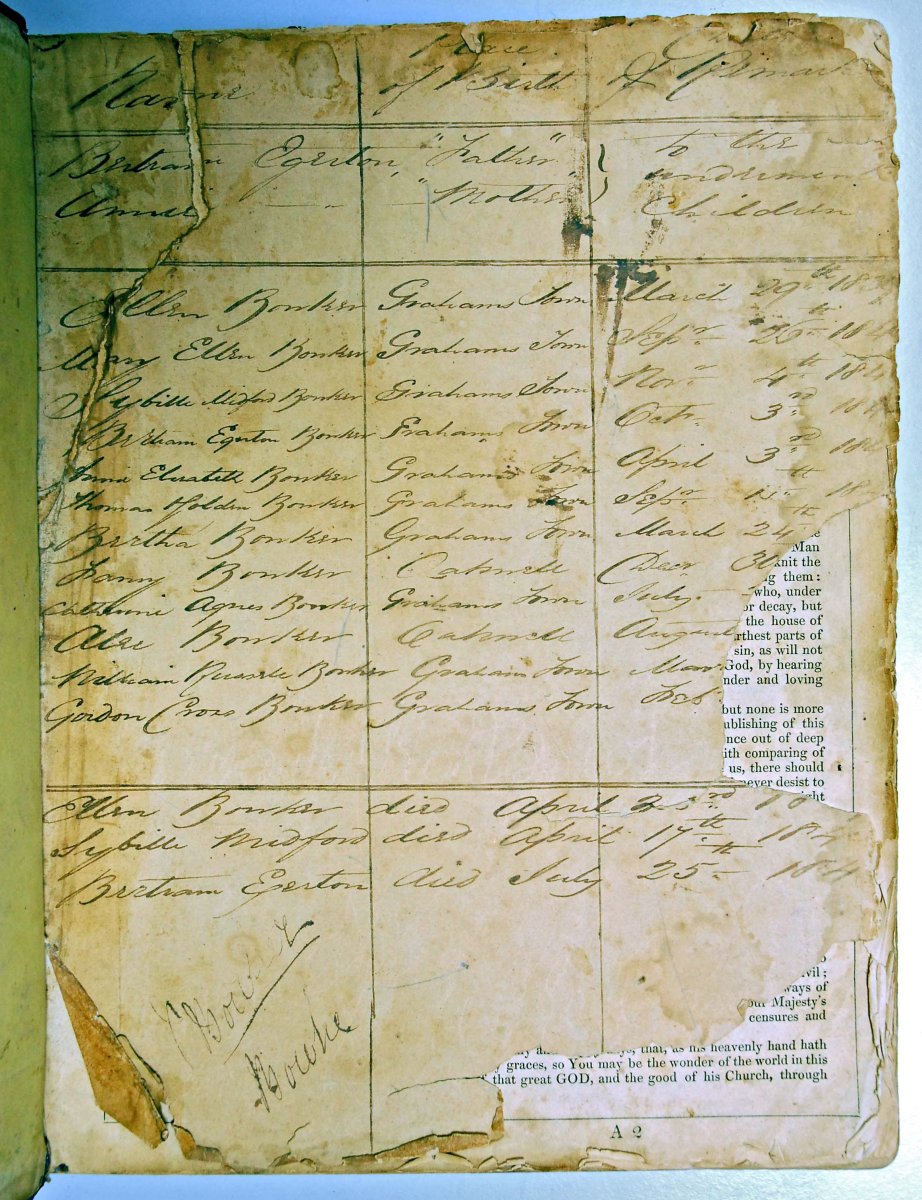 Place
Name of Birth & Remarks
Bertram Egerton, "Father" to the
Annie " " "Mother" underment
Children
Ellen Bowker Grahams Town March 29th 18
Mary Ellen Bowker Grahams Town Sepr 18
Sybille Midford Bowker Grahams Town Novr 4th 18
Bertram Egerton Bowker Grahams Town Octr 3rd 18
Anna Elizabeth Bowker Grahams Town April 3rd 18
Thomas Holden Bowker Grahams Town Sepr 18
Bertha Bowker Grahams Town March 24th
Fanny Bowker Oakwell Decr 30
Catherine Agnes Bowker Grahams Town July
Alee Bowker Oakwell August
William Russell Bowker Grahams Town
Gordon Cross Bowker Grahams Town Feb
Ellen Bowker died April 18
Sybille Midford died April 17th 18
Bertram Egerton died July 25th 18
Bowker
Bowke
Man
knit the
g them:
who, under
or decay, but
the house of
rthest parts of
sin, as will not
God, by hearing
nder and loving
but none is more
ublishing of this
nce out of deep
ith comparing of
us, there should
never desist to
ight
vil;
ways of
our Majesty's
censures and
that, as his heavenly hand hath
graces, so You may be the wonder of the world in this
that great GOD, and the good of his Church, through
A 2